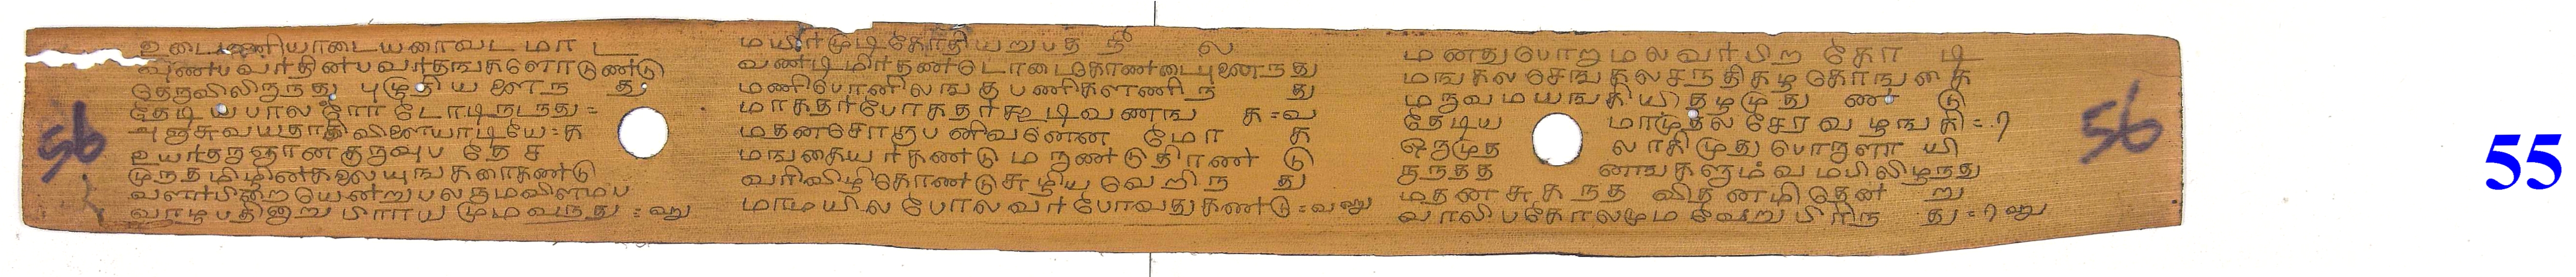 உடைமணியாடையரைவட மா ட
வுண்பவர்தின்பவர்தங்களொடுண்டு
தெருவிலிருந்து புழுதியளைந து
தேடியபாலரொ டோடிநடந்து =
அஞ்சுவயதாகிவிளையாடியே = ௧
உயர்தருஞானகுருவுப தே ச
முந்தமிழின்கலையுங்கரைகண்டு
வளர்பிறையென்றுபலருமவிளமப
வாழபதினாறு பிராயமுமவந்து = ௨
மயிர்முடிகோதியறுபத நீ ல
வண்டிமிர்தண்டொடைகொண்டைபுனைந்து
மணிபொனிலங்குபணிகளணிந து
மாகதர்போகதர்கூடிவணங க =
மதனசொரூபனிவனென மோ க
மங்கையர்கண்டு மருண்டுதிரண் டு
வரிவிழிகொண்டுசுழியவெறிந து
மாமயிலபோலவர்போவதுகண்டு =
மனதுபொறாமலவர்பிற கோ டி
மங்கலசெங்கலசந்திகழகொங்கை
மருவமயங்கியிதழமுது ண் டு
தேடிய மாமுதலசேரவழங்கி =
ஒருமுத லாகிமுதுபொருளா யி
ருந்தத னங்களும்வமபிலிழந்து
மதனசுகந்த விதனமிதென் று
வாலிபகோலமுமவேறுபிரிந து =
56
56
55